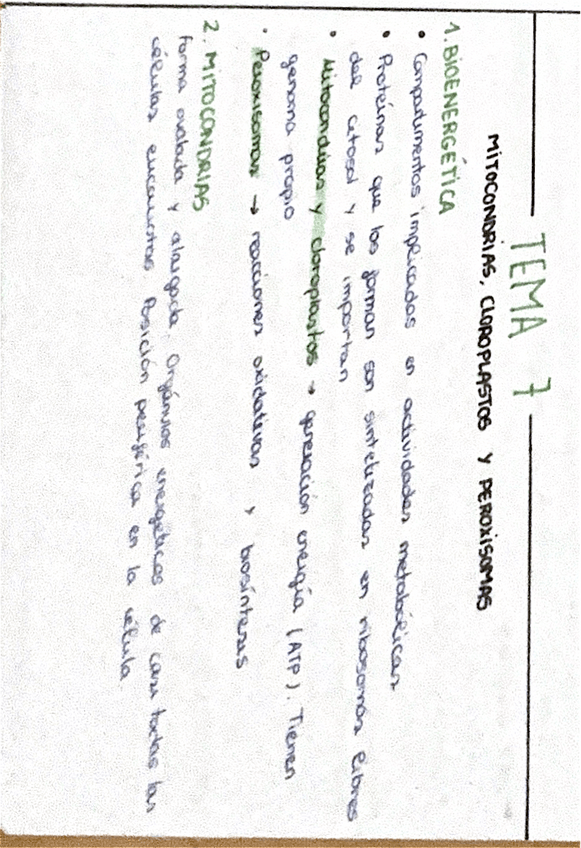 TEMA 7
MITOCONDRIAS, CLOROPLASTOS Y PEROXISOMAS
1. BIOENERGÉTICA
• Compartimentos implicados en actividades metabólicas
• Proteínas que los forman son sintetizadas en ribosomas libres
del citosol y se importan
• Mitocondrias y cloroplastos → generación energía (ATP). Tienen
genoma propio
• Peroxisomas → reacciones oxidativas y biosíntesis
2. MITOCONDRIAS
Forma ovalada y alargada. Orgánulos energéticos de casi todas las
células eucariotas. Posición periférica en la célula.